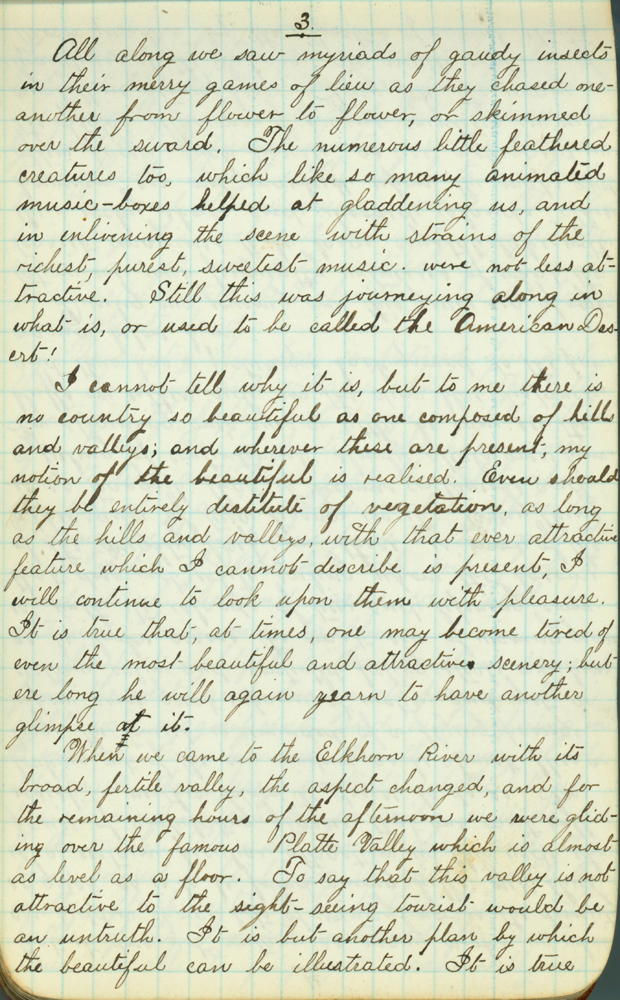 3.
All along we saw myriads of gaudy insects
in their merry games of lieu as they chased one-
another from flower to flower, or skimmed
over the sward. The numerous little feathered
creatures too, which like so many animated
music-boxes helped at gladdening us, and
in enlivening the scene with strains of the
richest, purest, sweetest music. were not less at-
tractive. Still this was journeying along in
what is, or used to be called the American Des-
ert!
I cannot tell why it is, but to me there is
no country so beautiful as one composed of hills
and valleys; and wherever these are present, my
notion of the beautiful is realised. Even should
they be entirely destitute of vegetation, as long
as the hills and valleys, with that ever attractive
feature which I cannot describe is present, I
will continue to look upon them with pleasure.
It is true that, at times, one may become tired of
even the most beautiful and attractive scenery; but
ere long he will again yearn to have another
glimpse at it.
When we came to the Elkhorn River with its
broad, fertile valley, the aspect changed, and for
the remaining hours of the afternoon we were glid-
ing over the famous Platte Valley which is almost
as level as a floor. To say that this valley is not
attractive to the sight-seeing tourist would be
an untruth. It is but another plan by which
the beautiful can be illustrated. It is true